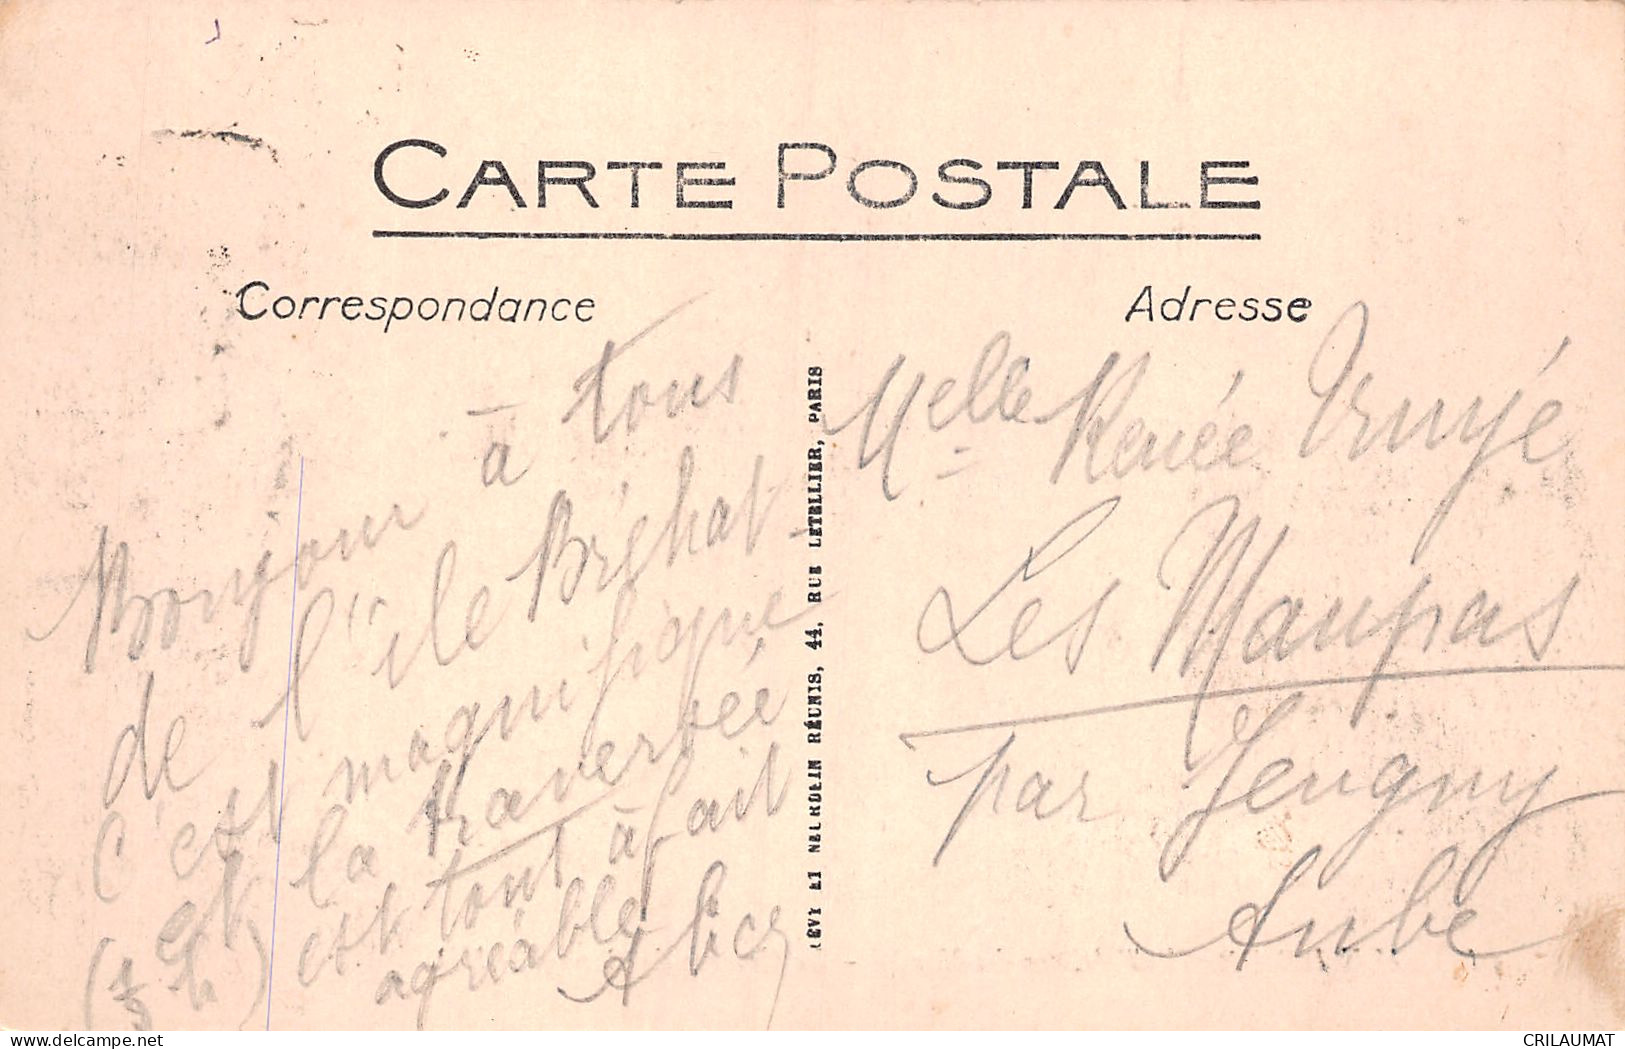 CARTE POSTALE
Correspondance
Adresse
Bonjour à tous
de l'île Bréhat -
c'est magnifique
et la traversée
(1/2 h) est tout à fait
agréable
LÉVY ET NEURDEIN RÉUNIS, 44, RUE LETELLIER, PARIS
Melle Renée Truyé
Les Maupas
par Jeugny
Aube
delcampe.net
CRILAUMAT